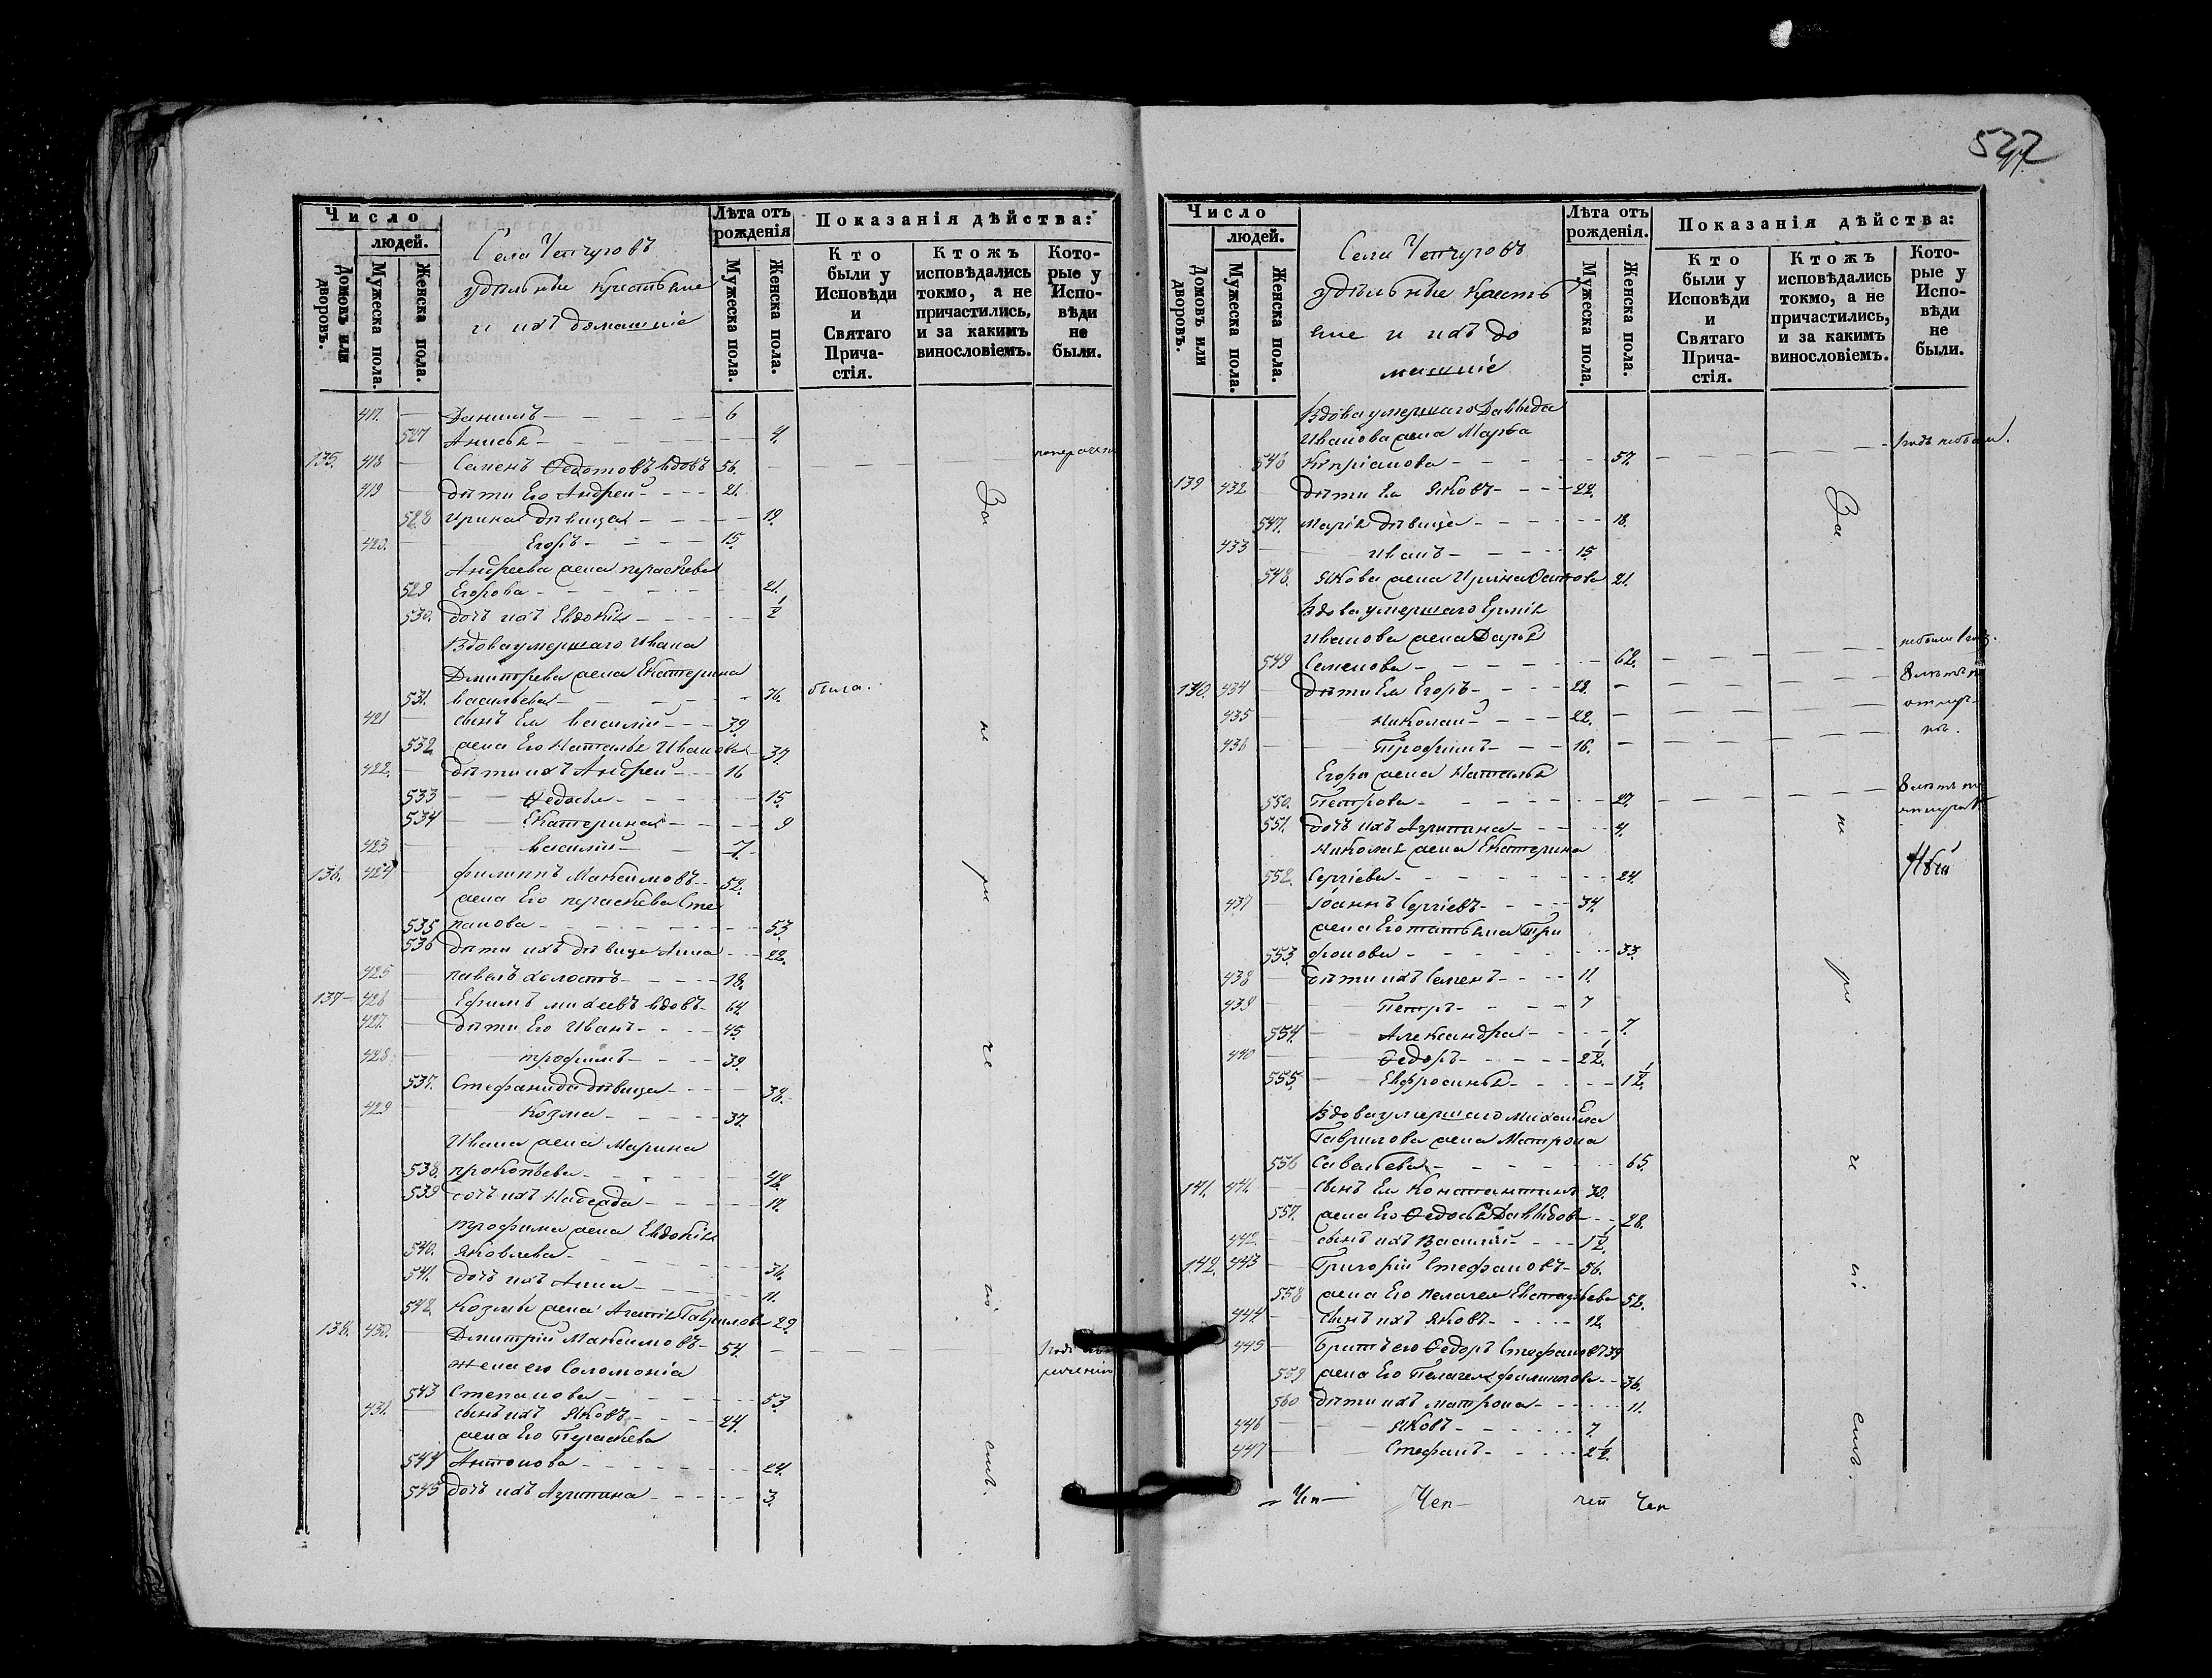 527
Число
людей.
Домовъ или дворовъ.
Мужеска пола.
Женска пола.
Села Чепчуговъ
удѣльные крестьяне
и ихъ домашніе
Лѣта отъ рожденія
Мужеска пола.
Женска пола.
Показанія дѣйства:
Кто были у Исповѣди и Святаго Прича- стія.
Ктожъ исповѣдались токмо, а не причастились, и за какимъ винословіемъ.
Кото- рые у Испо- вѣди не были.
417. Даниилъ 6
527 Анисья 4.
135. 418 Семенъ Ѳедотовъ вдовъ 56.
419 дѣти Его Андрей 21.
528 Ирина дѣвица 19.
420. Егоръ 15.
Андреева жена параскева
529 Егорова 21.
530. дочь ихъ Евдокія ½
Вдова умершаго Ивана
Дмитрева жена Екатерина
531. васильева 76. была.
421 сынъ Ея василій 39.
532 жена Его Наталья Иванова 37.
422. дѣти ихъ Андрей 16
533 Ѳедосья 15.
534 Екатерина 9
423 василій 7.
136. 424 филиппъ Максимовъ 52.
жена Его параскева Сте
535 панова 53.
536 дѣти ихъ дѣвица Анна 22.
425 павелъ холостъ 18.
137 426 Ефимъ михеевъ вдовъ 64.
427. дѣти Его Иванъ 45.
428. трофимъ 39.
537. Стефанида дѣвица 38.
429 Козма 37.
Ивана жена Марина
538. прокопьева 42.
539 дочь ихъ Надежда 17.
трофима жена Евдокія
540. Яковлева 36.
541. дочь ихъ Анна 11.
542. Козмы жена Агапія Гаврилова 29.
138. 430. Дмитрій Максимовъ 54.
жена его Соломонія
543 Степанова 53.
431. сынъ ихъ Яковъ 24.
жена Его Параскева
544 Антонова 24.
545 дочь ихъ Агрипина 3.
За
не
ри
че
ні
емъ.
Число
людей.
Домовъ или дворовъ.
Мужеска пола.
Женска пола.
Села Чепчуговъ
удѣльные кресть
яне и ихъ до
машніе
Лѣта отъ рожденія.
Мужеска пола.
Женска пола.
Показанія дѣйства:
Кто были у Исповѣди и Святаго Прича- стія.
Ктожъ исповѣдались токмо, а не причастились, и за какимъ винословіемъ.
Кото- рые у Испо- вѣди не были.
Вдова умершаго Давыда
Иванова жена Марѳа
546 Кипріанова 57.
139 432 дѣти Ея Яковъ 22.
547. Марія дѣвица 18.
433 Иванъ 15
548. Якова жена Ирина 21.
Вдова умершаго Ермія
Иванова жена Дарья
549 Семенова 62.
140 434 дѣти Ея Егоръ 28.
435 Николай 22.
436 Трофимъ 16.
Егора жена Наталья
550. Петрова 27.
551. дочь ихъ Агрипина 4.
Николая жена Екатерина
552. Сергіева 24.
437 Іоаннъ Сергіевъ 34.
жена Его татьяна Три
553. фонова 33.
438 дѣти ихъ Семенъ 11.
439 Петръ 7
554. Александра 7.
440 Ѳедоръ 2½.
555. Евфросинья 1½.
Вдова умершаго Михаила
Гаврилова жена Матрона
556 Савельева 65.
141. 441. сынъ Ея Константинъ 30.
557. жена Его Ѳедосья Давыдова 28.
442. сынъ ихъ Василій 1½.
142. 443 Григорій Стефановъ 56.
558 жена Его Пелагея Евстафьева 52.
444 сынъ ихъ Яковъ 12.
445 Братъ его Ѳедоръ Стефановъ 39
559 жена Его Пелагея филиппова 36.
560 дѣти ихъ матрона 11.
446 Яковъ 7.
447 Стефанъ 2½.
За
не
ри
че
ні
емъ.
Чеп Чеп чеп Чеп